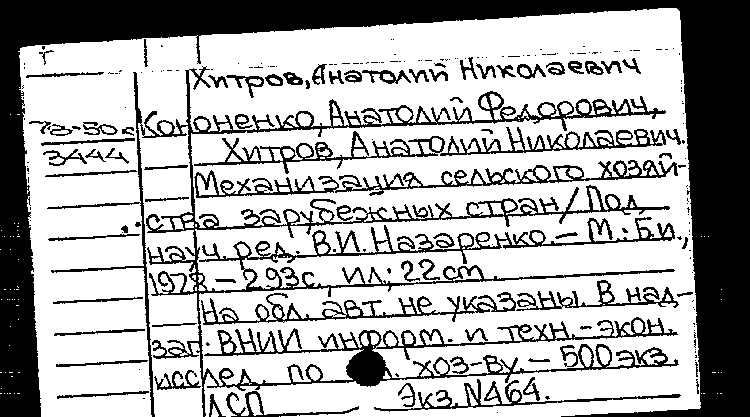 Хитров, Анатолий Николаевич
73-50к Кононенко, Анатолий Федорович,
3444 Хитров, Анатолий Николаевич.
Механизация сельского хозяй-
ства зарубежных стран / Под
науч. ред.: В.И. Назаренко. – М.: Б.и.,
1973. – 293с., ил; 22см.
На обл. авт. не указаны. В над-
заг: ВНИИ информ. и техн.-экон.
исслед. по хоз-ву. – 500экз.
ДСП Экз. N464.